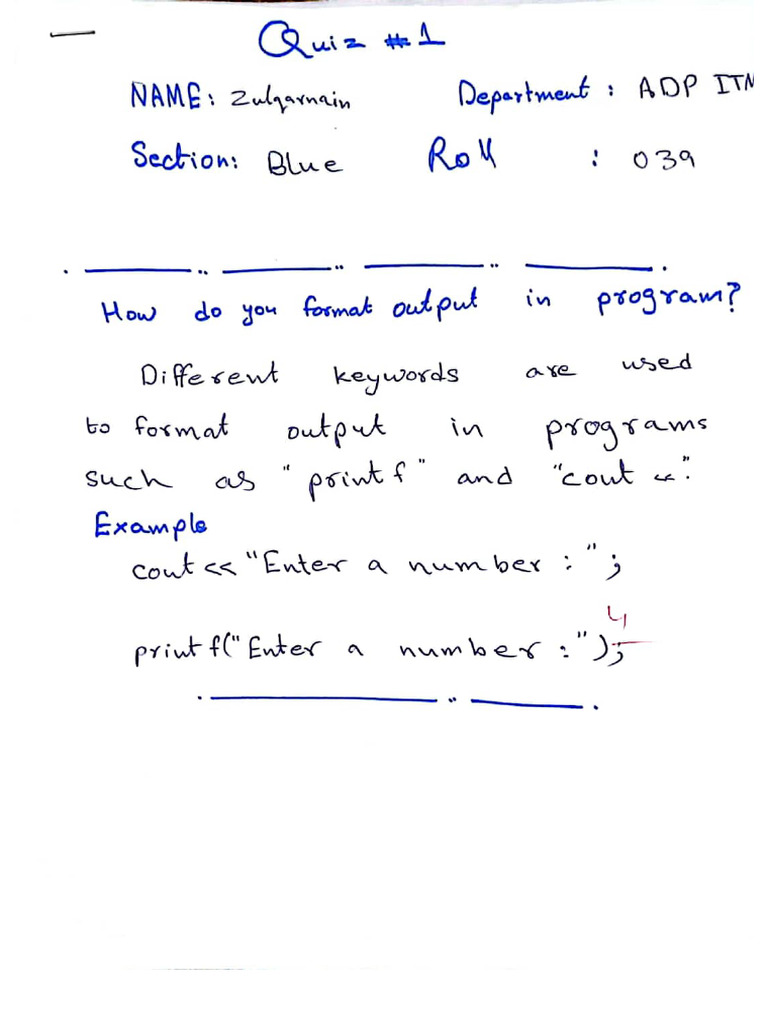 Quiz #1
NAME: Zulqarnain Department: ADP ITM
Section: Blue Roll : 039
How do you format output in program?
Different keywords are used
to format output in programs
such as "printf" and "cout <<".
Example
cout << "Enter a number : ";
4
printf("Enter a number :");